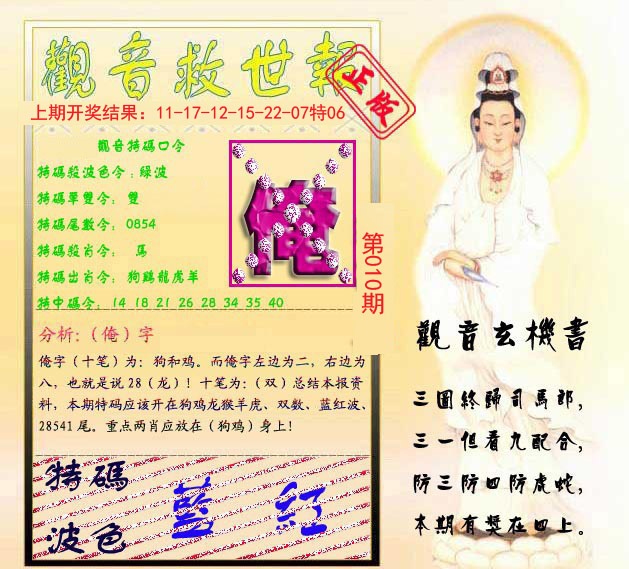 觀音救世報
正版
上期开奖结果：11-17-12-15-22-07特06
觀音特碼口令
特碼殺波色令：綠波
特碼單雙令： 雙
特碼尾數令： 0854
特碼殺肖令： 馬
特碼出肖令： 狗鷄龍虎羊
特中碼令： 14 18 21 26 28 34 35 40
俺
第010期
分析:（俺）字
俺字（十笔）为：狗和鸡。而俺字左边为二，右边为
八，也就是说28（龙）！十笔为:（双）总结本报资
料，本期特码应该开在狗鸡龙猴羊虎、双数、蓝红波、
28541尾。重点两肖应放在（狗鸡）身上！
特碼
波色
藍 紅
觀音玄機書
三國終歸司馬郎，
三一但看九配合，
防三防四防虎蛇，
本期有獎在四上。